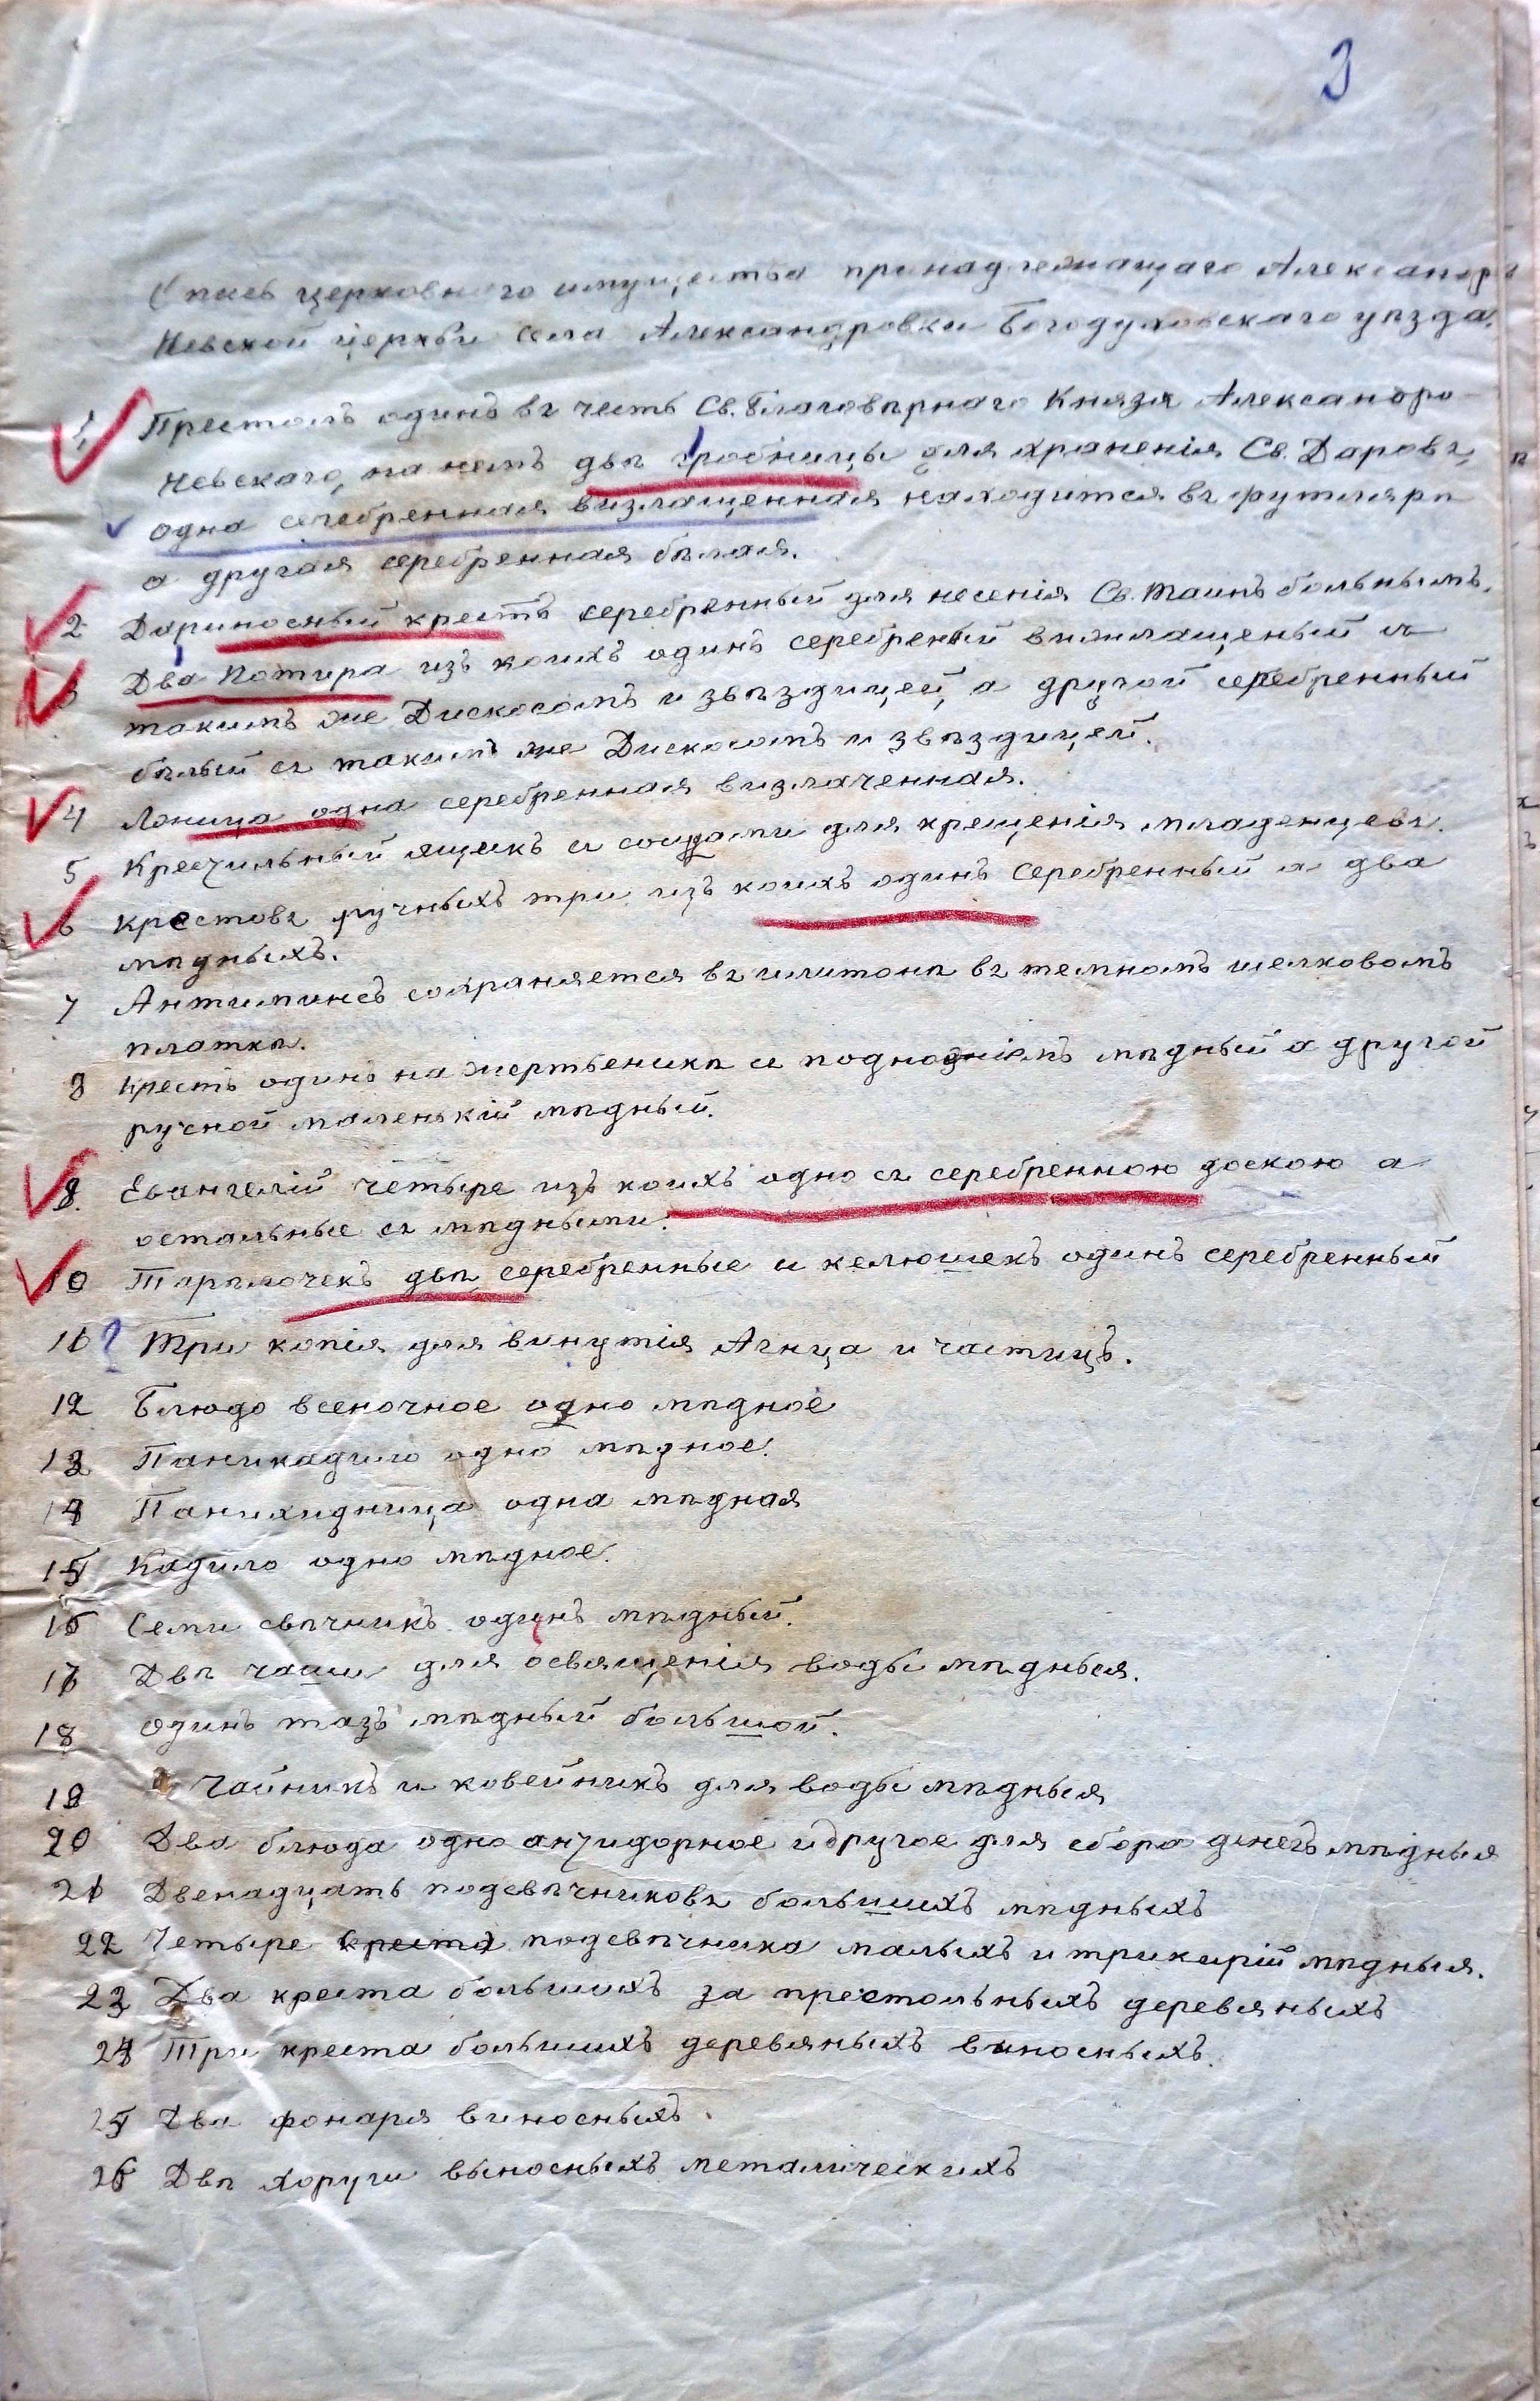 3
Опись церковного имущества принадлежащаго Александро
Невской церкви села Александровки Богодуховскаго уѣзда.
1, Престолъ одинъ въ честь Св. Благовѣрнаго Князя Александро-
Невскаго, на немъ двѣ гробницы для храненія Св. Даровъ,
одна серебренная визлащенная находится въ футлярѣ
а другая серебренная бѣлая.
2 Дариносный крестъ серебрянный для несенія Св. Таинъ больнымъ.
3 Два Потира изъ коихъ одинъ серебреный визлащеный съ
такимъ же Дискосомъ и звѣздицей, а другой серебренный
бѣлый съ такимъ же Дискосомъ и звѣздицей.
4 Лжица одна серебренная визлаченная.
5 Крестильный ящикъ съ сосудами для крещенія младенцевъ.
6 Крестовъ ручныхъ три изъ коихъ одинъ серебренный а два
мѣдныхъ.
7 Антиминсъ сохраняется въ илитонѣ въ темномъ шелковомъ
платкѣ.
8 Крестъ одинъ на жертвеникѣ съ подножіемъ мѣдный а другой
ручной маленькій мѣдный.
9. Евангелій четыре изъ коихъ одно съ серебренною доскою а
остальные съ мѣдными.
10 Тарѣлочекъ двѣ серебренные и келюшекъ одинъ серебренный
11 Три копія для винутія Агнца и частицъ.
12 Блюдо всеночное одно мѣдное
13 Паникадило одно мѣдное.
14 Панихидница одна мѣдная
15 Кадило одно мѣдное.
16 Семи свѣчникъ одинъ мѣдный.
17 Двѣ чаши для освященія воды мѣдныя.
18 Одинъ тазъ мѣдный большой.
19 Чайникъ и ковейникъ для воды мѣдныя
20 Два блюда одно анзидорное и другое для сбора денегъ мѣдныя
21 Двенадцать подсвѣчниковъ большихъ мѣдныхъ
22 Четыре креста подсвѣчника малыхъ и трикирій мѣдныя.
23 Два креста большихъ за престольныхъ деревяныхъ
24 Три креста большихъ деревяныхъ виносныхъ.
25 Два фонаря виносныхъ.
26 Двѣ хоруги выносныхъ металическихъ